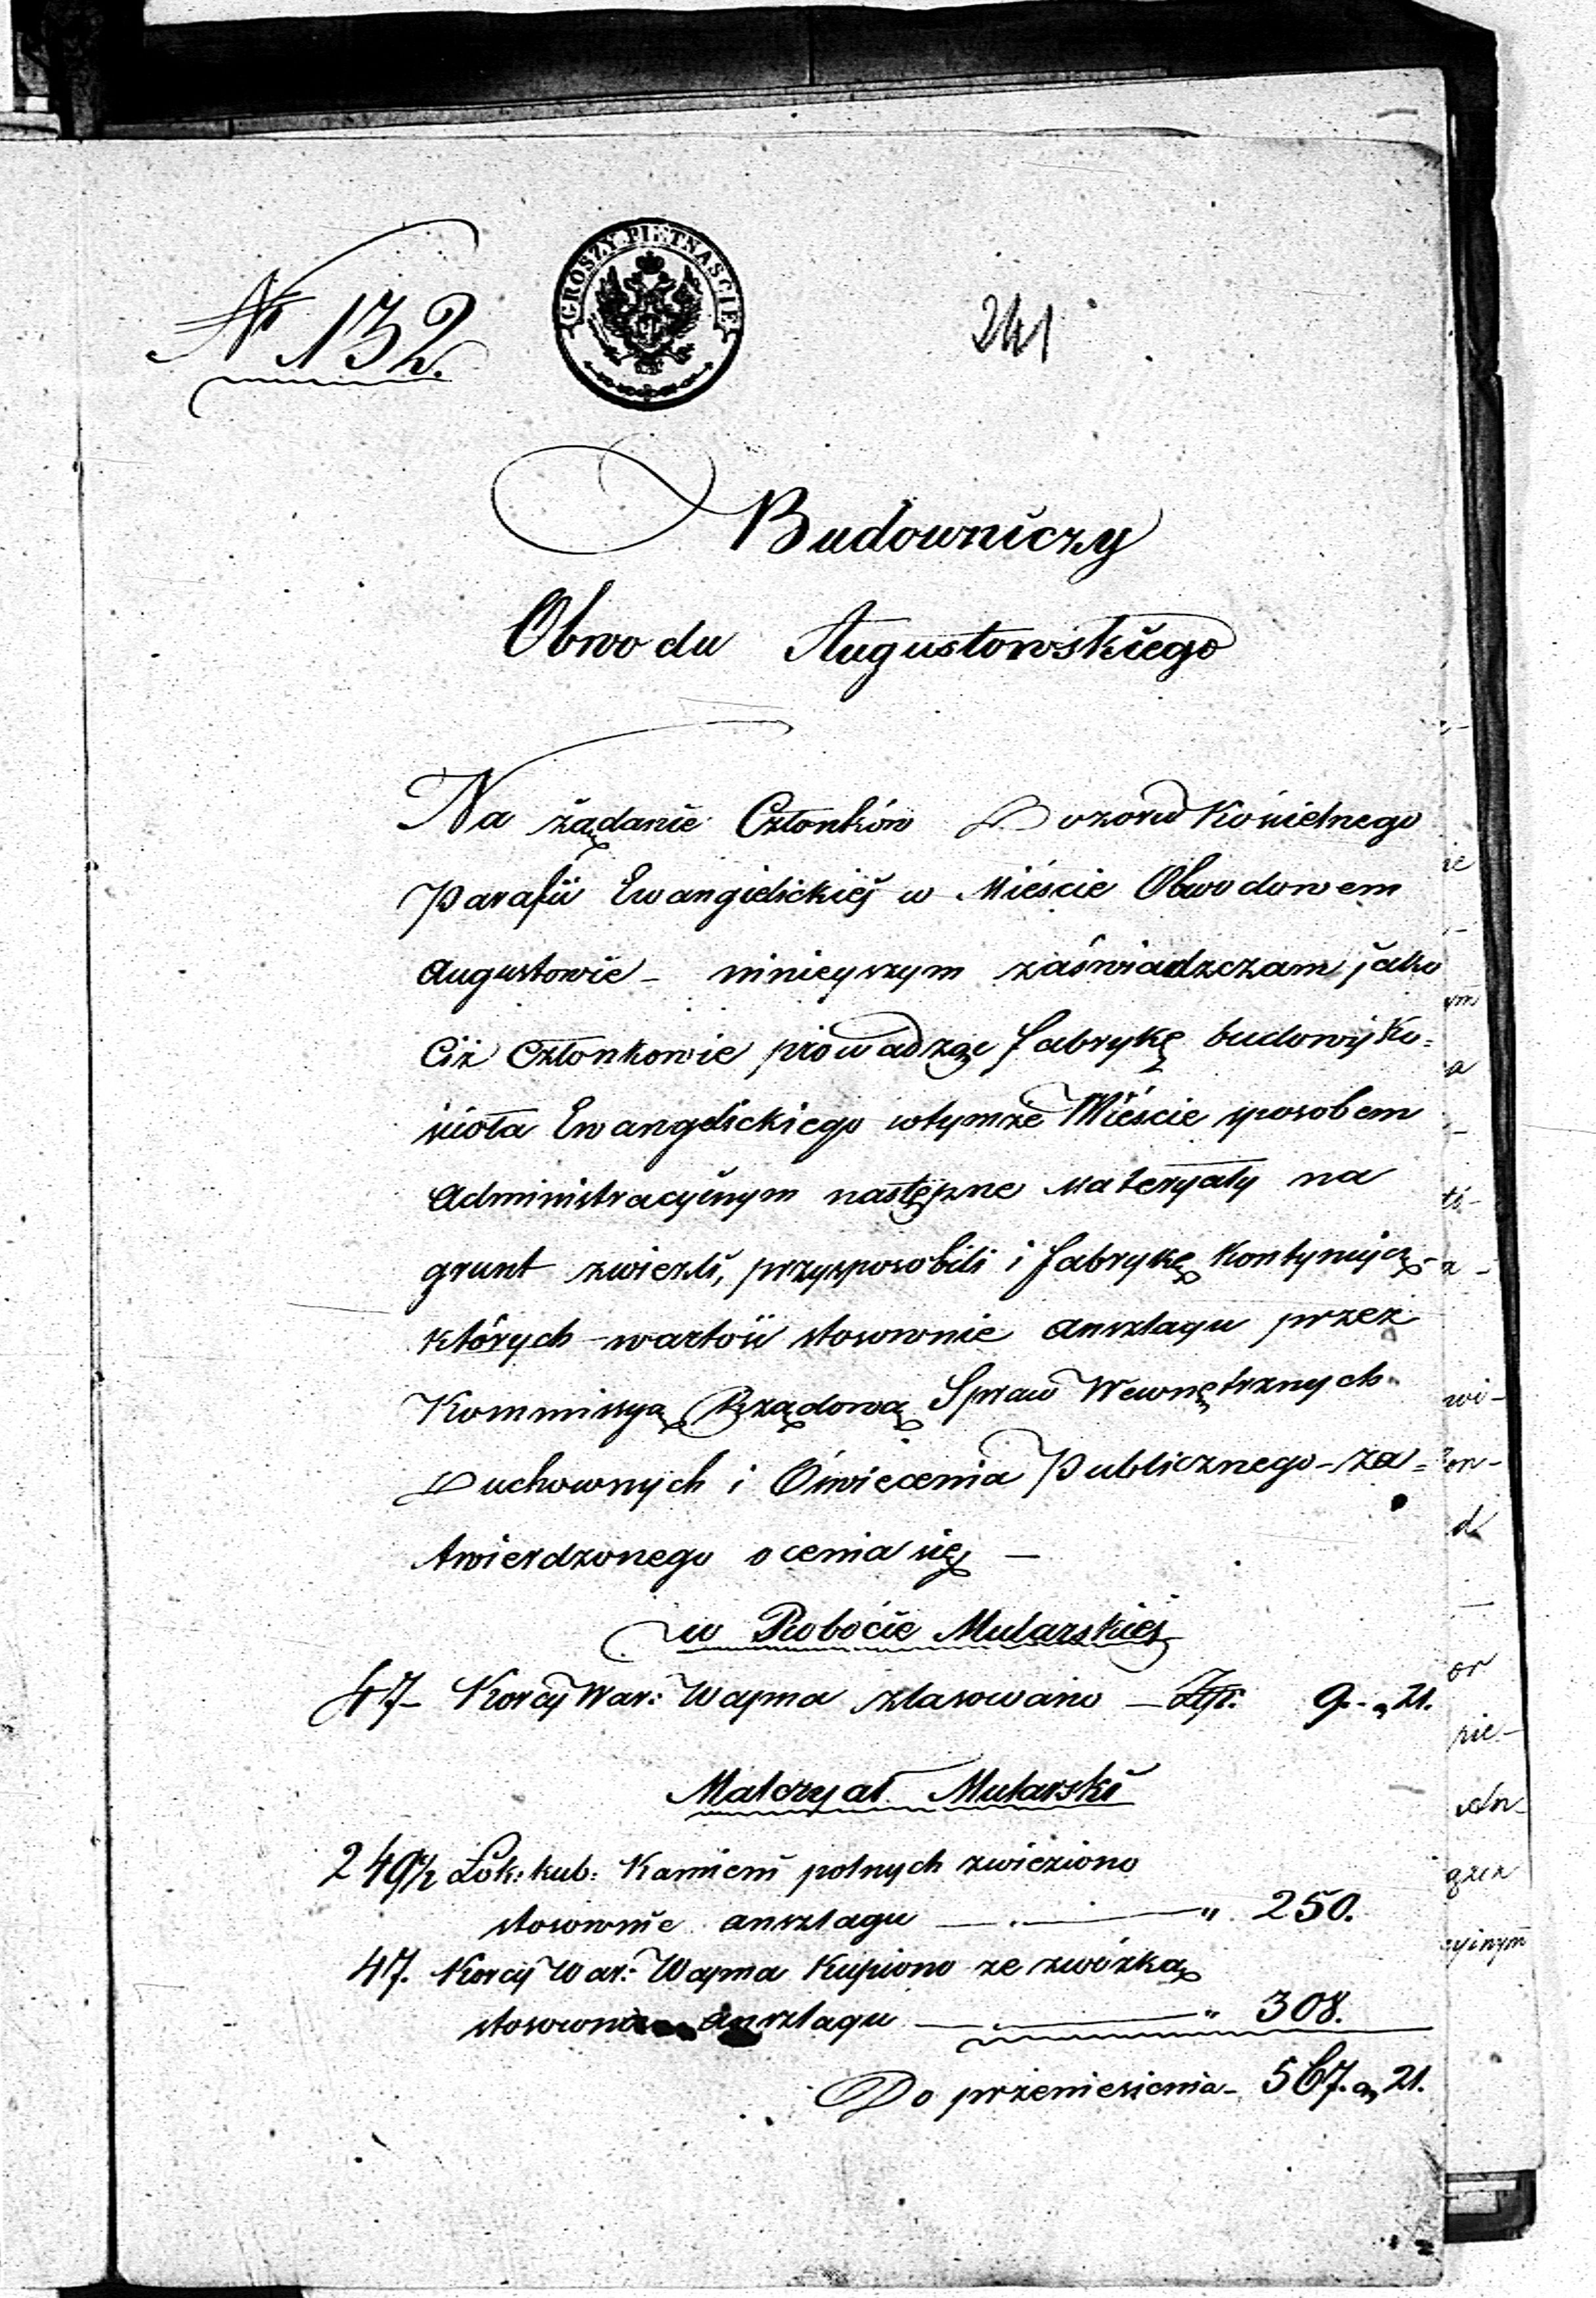 N 132.
GROSZY PIĘTNAŚCIE
241
Budowniczy
Obwodu Augustowskiego
Na żądanie Członków Dozoru Kościelnego
Parafii Ewangielickiéj w Mieście Obwodowem
Augustowie – ninieyszym zaświadzczam jako
Ciż Członkowie prowadząc fabrykę budowy Ko=
ścioła Ewangelickiego wtymże Mieście sposobem
Administracyinym następne materyały na
grunt zwieźli, przysposobili i fabrykę kontynują
których wartość stosownie anszlagu przez
Kommissyą Rządową Spraw Wewnętrznych
Duchownych i Oświecenia Publicznego – za=
twierdzonego ocenia się –
w Robocie Mularskiéj
47 Korcy War: Wapna zlasowano – Złp: 9. „ 21.
Materyał Mularski
249½ Łok: kub: Kamieni polnych zwieziono
stosownie anszlagu — „ 250.
47. Korcy War: Wapna Kupiono ze zwózką
stosownie anszlagu — „ 308.
Do przeniesienia – 567. „ 21.